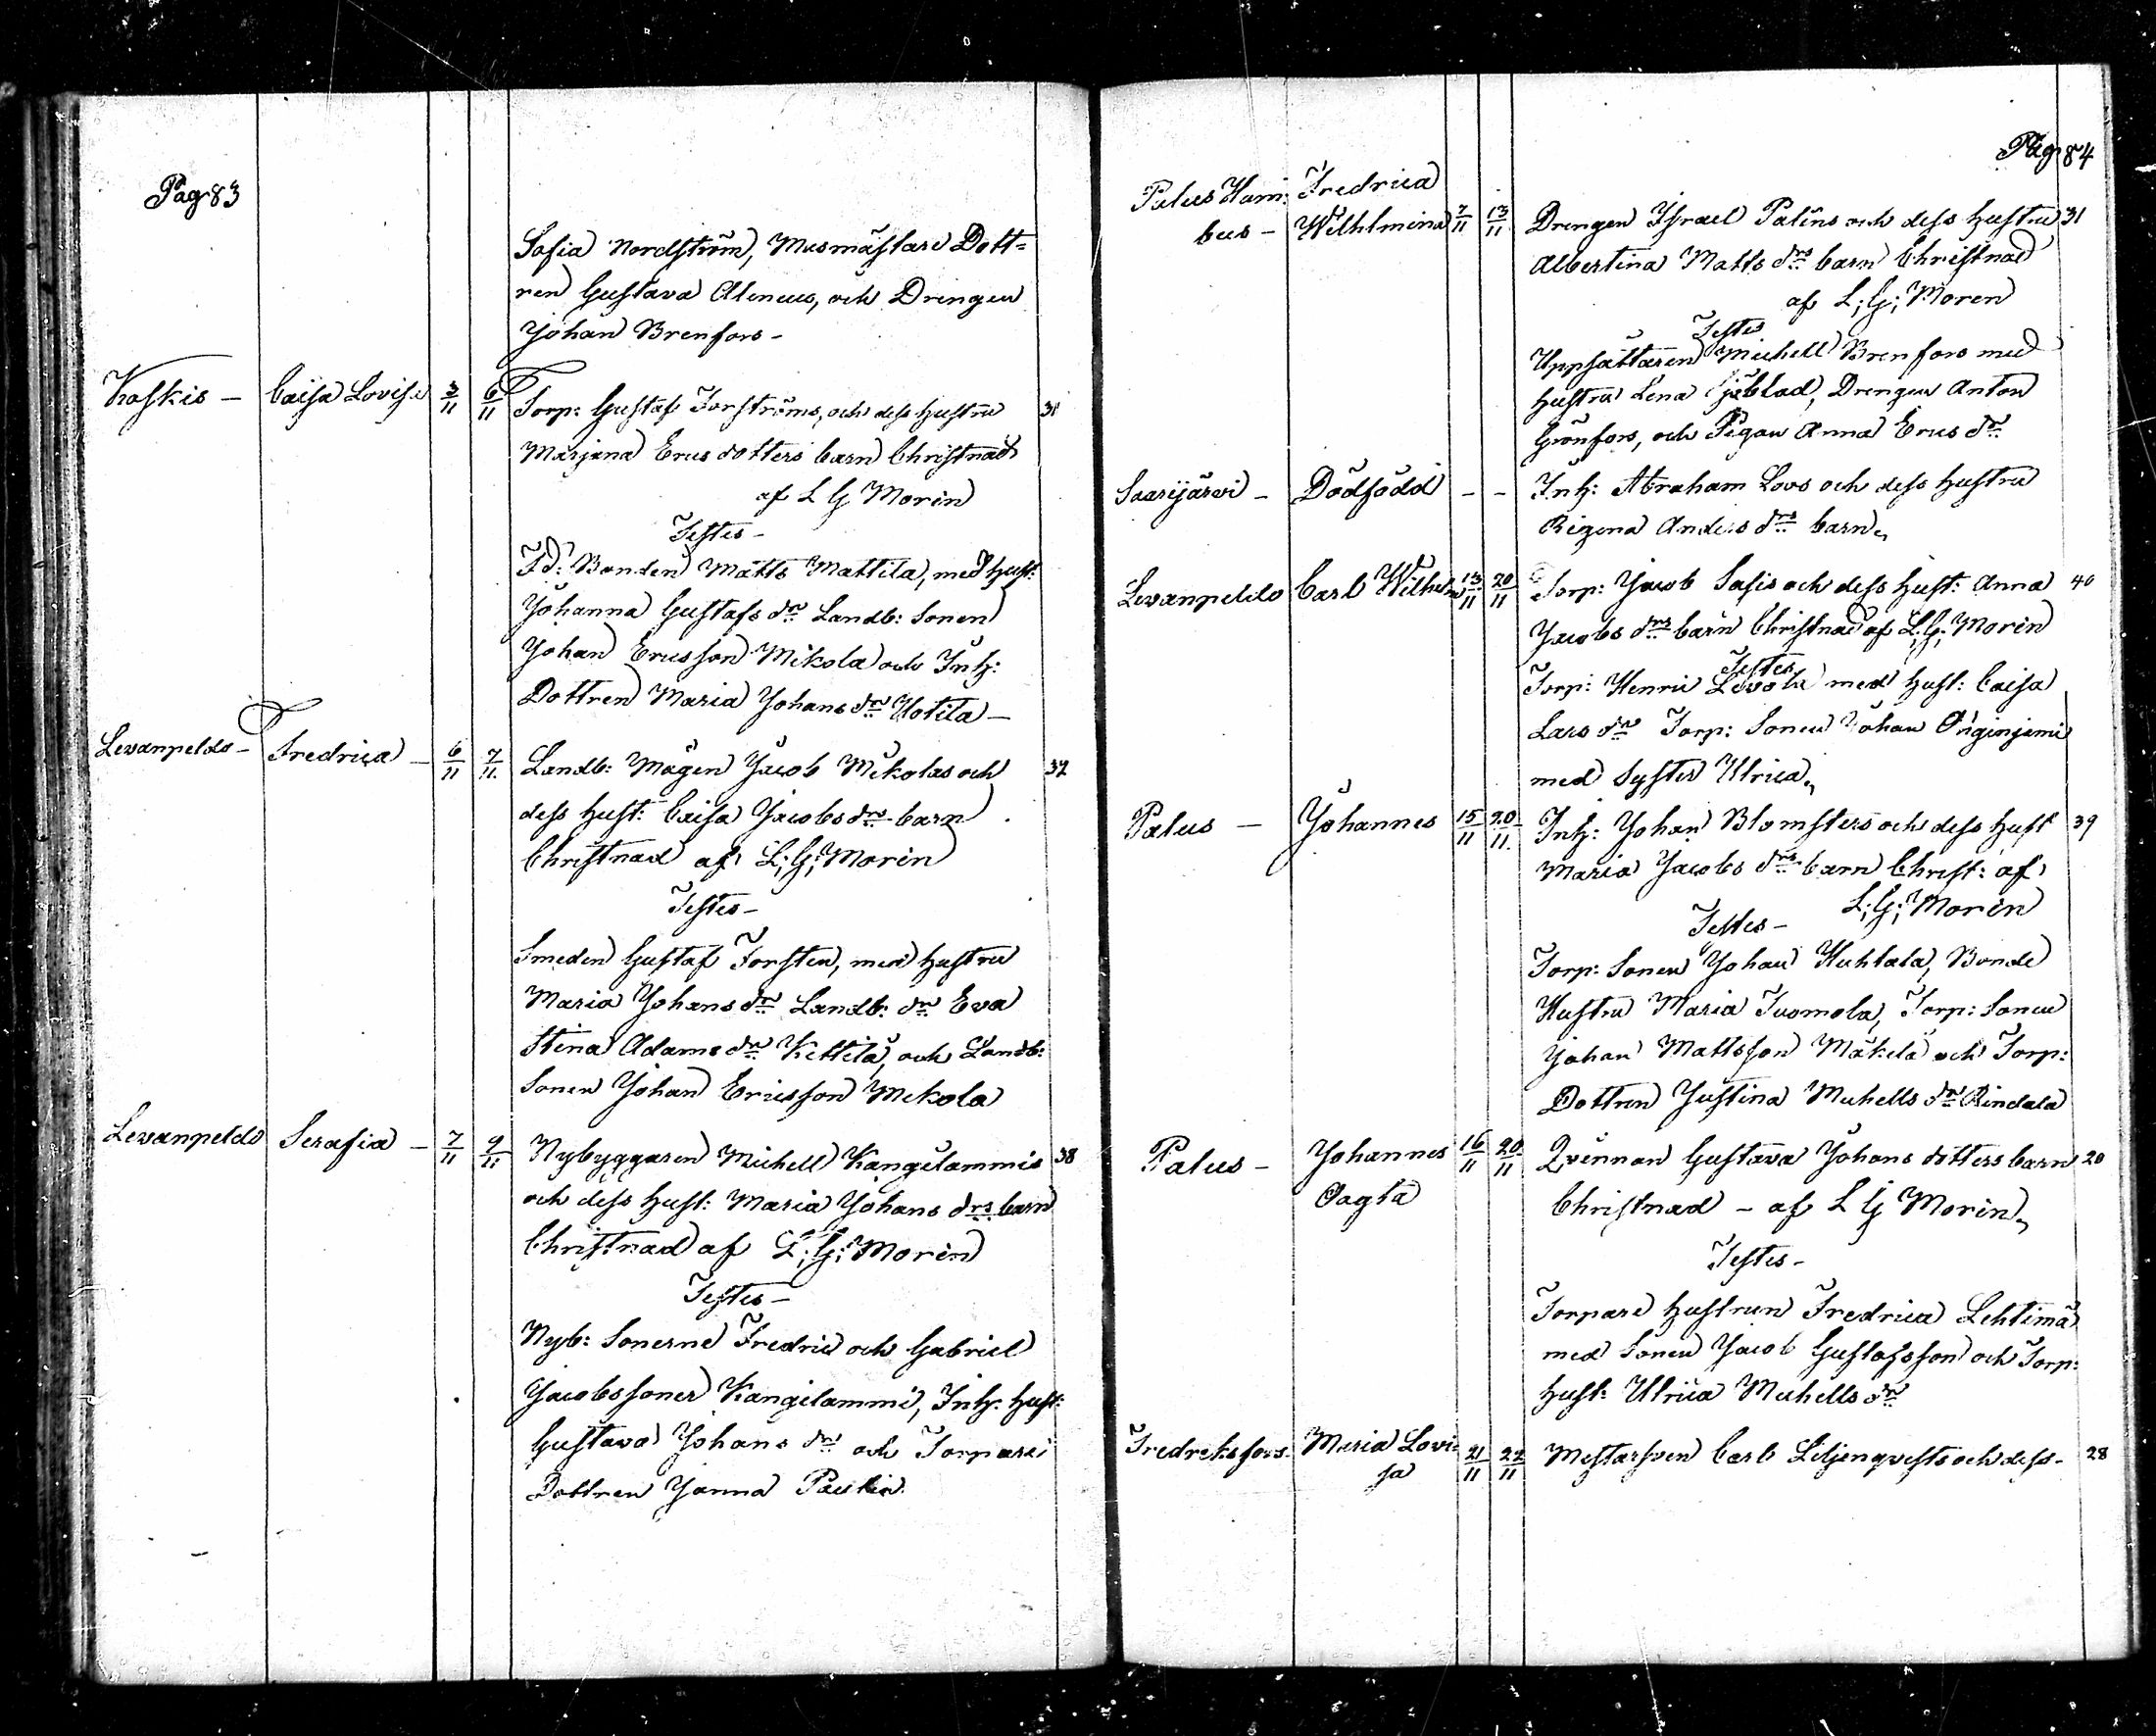 Pag 83
Sofia Nordström, Musmästare Dott=
ren Gustava Aleneus, och Drengen
Johan Brenfors -
Koskis - Caisa Lovisa 3/11 6/11 Torp: Gustaf Forströms, och dess hustru 31
Marjana Ericsdotters barn Christnad
af L G Morin
Testes -
Fd: Bonden Matts Mattila, med Hust:
Johanna Gustafs dr Landb: Sonen
Johan Ericsson Mikola och Inh:
Dottren Maria Johans dr Hotila -
Levanpeldo - Fredrica - 6/11 7/11 Landb: Mågen Jacob Mikolas och 32
dess Hust: Caisa Jacobs drs barn
Christnad af L; G; Morin
Testes -
Smeden Gustaf Forsten, med hustru
Maria Johans dr Landb: dr Eva
Stina Adams dr Kettilä, och Landb:
Sonen Johan Ericsson Mikola
Levanpeldo Serafia - 7/11 9/11 Nybyggaren Michell Kangilammis 38
och dess Hust: Maria Johans drs barn
Christnad af L; G; Morin
Testes -
Nyb: Sonerne Fredric och Gabriel
Jacobssoner Kangilammi, Inh: Hust:
Gustava Johans dr och Torpare
Dottren Janna
Pag 84
Palus Ham: Fredrica
bus - Wilhlmina 7/11 13/11 Drengen Israel Palins och dess Hustru 31
Albertina Matts drs barn Christnad
af L; G; Moren
Testes
Uppsättaren Michell Brenfors med
hustru Lena Sjöblad, Drengen Anton
Grönfors, och Pigan Anna Erics dr
Saarijärvi - Dödfödd - - Inh: Abraham Lovs och dess Hustru
Rigena Anders drs barn
Levanpeldo Carl Wilhelm 13/11 20/11 Torp: Jacob Safis och dess Hust: Anna 40
Jacobs drs barn Christnad af L; G; Morin
Testes
Torp: Henric med Hust: Caisa
Lars dr Torp: Sonen Johan
med Syster Ulrica
Palus - Johannes 15/11 20/11 Inh: Johan Blomsters och dess Hust 39
Maria Jacobs drs barn Christ: af
L; G; Morin
Testes -
Torp: Sonen Johan Huhtala, Bonde
Hustru Maria Tuomola, Torp: Sonen
Johan Mattsson Mäkelä och Torp:
Dottren Justina Michells dr Rindala
Palus - Johannes 16/11 20/11 Qvinnan Gustava Johans dotters barn 20
Oagta
Christnad - af L G Morin
Testes -
Torpare hustrun Fredrica Lehtimä
med Sonen Jacob Gustafsson och Torp:
Hust: Ulrica Michells dr
Fredriksfors Maria Lovi= 21/11 22/11 Mestarssen Carl Liljenqvists och dess - 28
sa